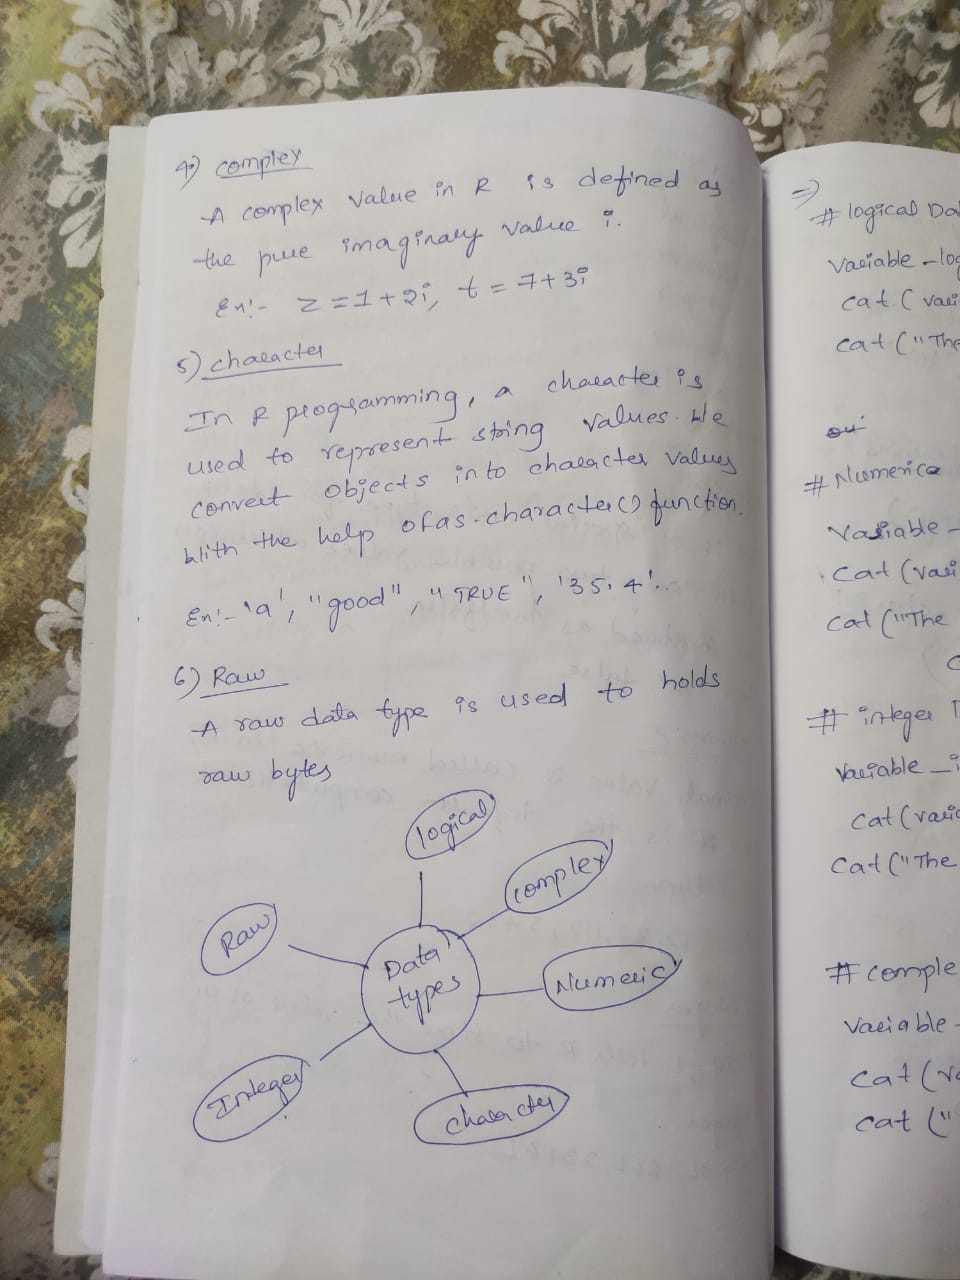 4) complex
A complex value in R is defined as
the pure imaginary value i.
Ex:- z = 1 + 2i, t = 7 + 3i
5) character
In R programming, a character is
used to represent string values. We
convert objects into character values
With the help of as.character() function.
Ex:- 'a', "good", "TRUE", '35.4'.
6) Raw
A raw data type is used to holds
raw bytes
logical
complex
Raw
Data
types
Numeric
Integer
character
=>
# logical Da
Variable_log
cat (vari
cat ("The
# Numerica
Variable_
cat (vari
cat ("The
# integer
Variable_i
cat (varia
cat ("The
# comple
Variable_
cat (va
cat ("